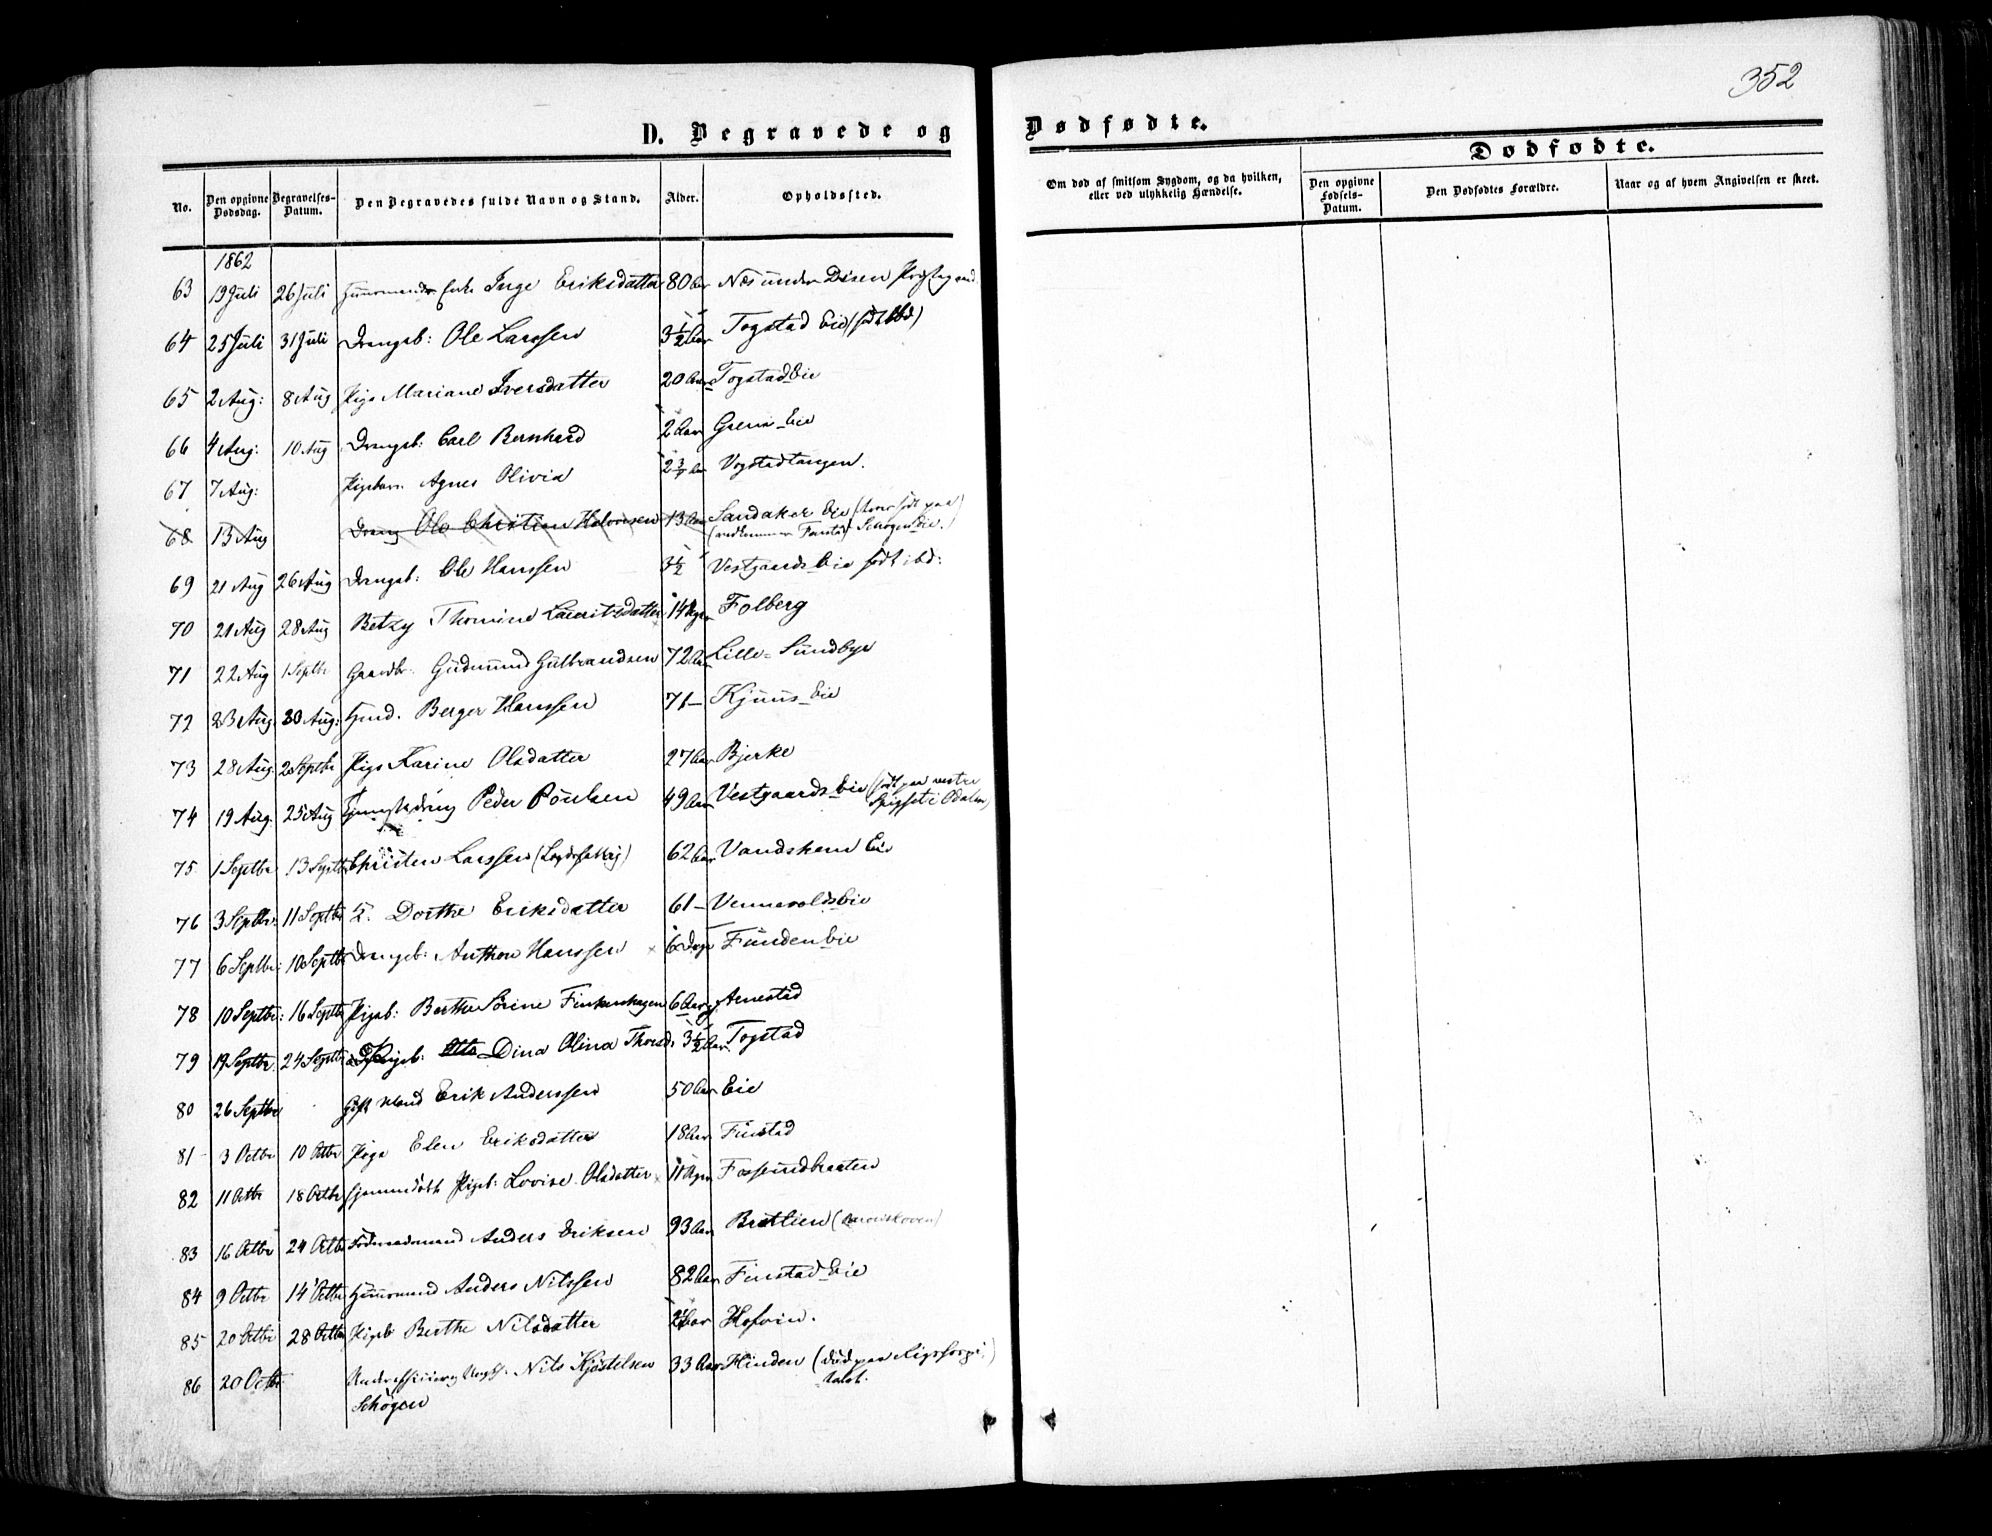 352
D. Begravede og Dødfødte.
Dødfødte.
No. Den opgivne Dødsdag. Begravelses-Datum. Den Begravedes fulde Navn og Stand. Alder. Opholdssted. Om død af smitsom Sygdom, og da hvilken, eller ved ulykkelig Hændelse. Den opgivne Fødsels-Datum. Den Dødfødtes Forældre. Naar og af hvem Angivelsen er skeet.
1862
63 19 Juli 26 Juli Huusmands Enke Inge Eriksdatter 80 Aar Næs under Disen
64 25 Juli 31 Juli Drengeb: Ole Larssen 3½ Aar Togstad Eie (født ibd)
65 2 Aug: 8 Aug Pige Mariane Iversdatter 20 Aar Togstad Eie
66 4 Aug: 10 Aug Drengeb: Carl Bernhard 2 Aar Eie
67 7 Aug: Pigebarn Agnes Olivia 2 Aar Vogstadtangen.
68 13 Aug Dreng Ole Christian Halvorsen 13 Aar Sandaker Eie
69 21 Aug 26 Aug Drengeb: Ole Hanssen 3½ Vestgaards Eie født ibd:
70 21 Aug 28 Aug Betzy Thomine Lauritsdatter 14 Uger Folberg
71 22 Aug 1 Septbr Gaardbr. Gudmund Gulbrandsen 72 Aar Lille-Sundbye
72 23 Aug. 30 Aug: Berger Hanssen 71 - Kjuus Eie
73 28 Aug. 2 Septbr Pige Karine Olsdatter 27 Aar Bjerke
74 19 Aug. 25 Aug Peder Poulsen 49 Aar Vestgaards Eie (født paa vestre
i Odalen)
75 1 Septbr 13 Septbr Christen Larssen 62 Aar Eie
76 3 Septbr: 11 Septbr Dorthe Eriksdatter 61 - Vennevolds Eie
77 6 Septbr: 10 Septbr Drengeb: Anthon Hanssen 6 Dage Funden Eie
78 10 Septbr: 16 Septbr Pigeb: Berthe Sørine Finkenhagen 6 Aar Arnestad
79 19 Septbr 24 Septbr Pigeb: Dina Olina Thorsd. 3½ Aar Togstad
80 26 Septbr Gift Mand Erik Anderssen 50 Aar Eie
81 3 Octbr 10 Octbr Pige Elen Eriksdatter 18 Aar Finstad
82 11 Octbr 18 Octbr Hjemmedøbt Pigeb: Lovise Olsdatter 11 Uger Fossumbraaten
83 16 Octbr 24 Octbr Føderaadsmand Anders Eriksen 93 Aar
84 9 Octbr 14 Octbr Huusmand Anders Nilssen 82 Aar Finstad Eie
85 20 Octbr 28 Octbr Pigeb Berthe Nilsdatter 2 Aar Hofvin.
86 20 Octbr Nils Kjøstelsen 33 Aar Hinden (død paa Rigshospi-
talet.
Schøgen